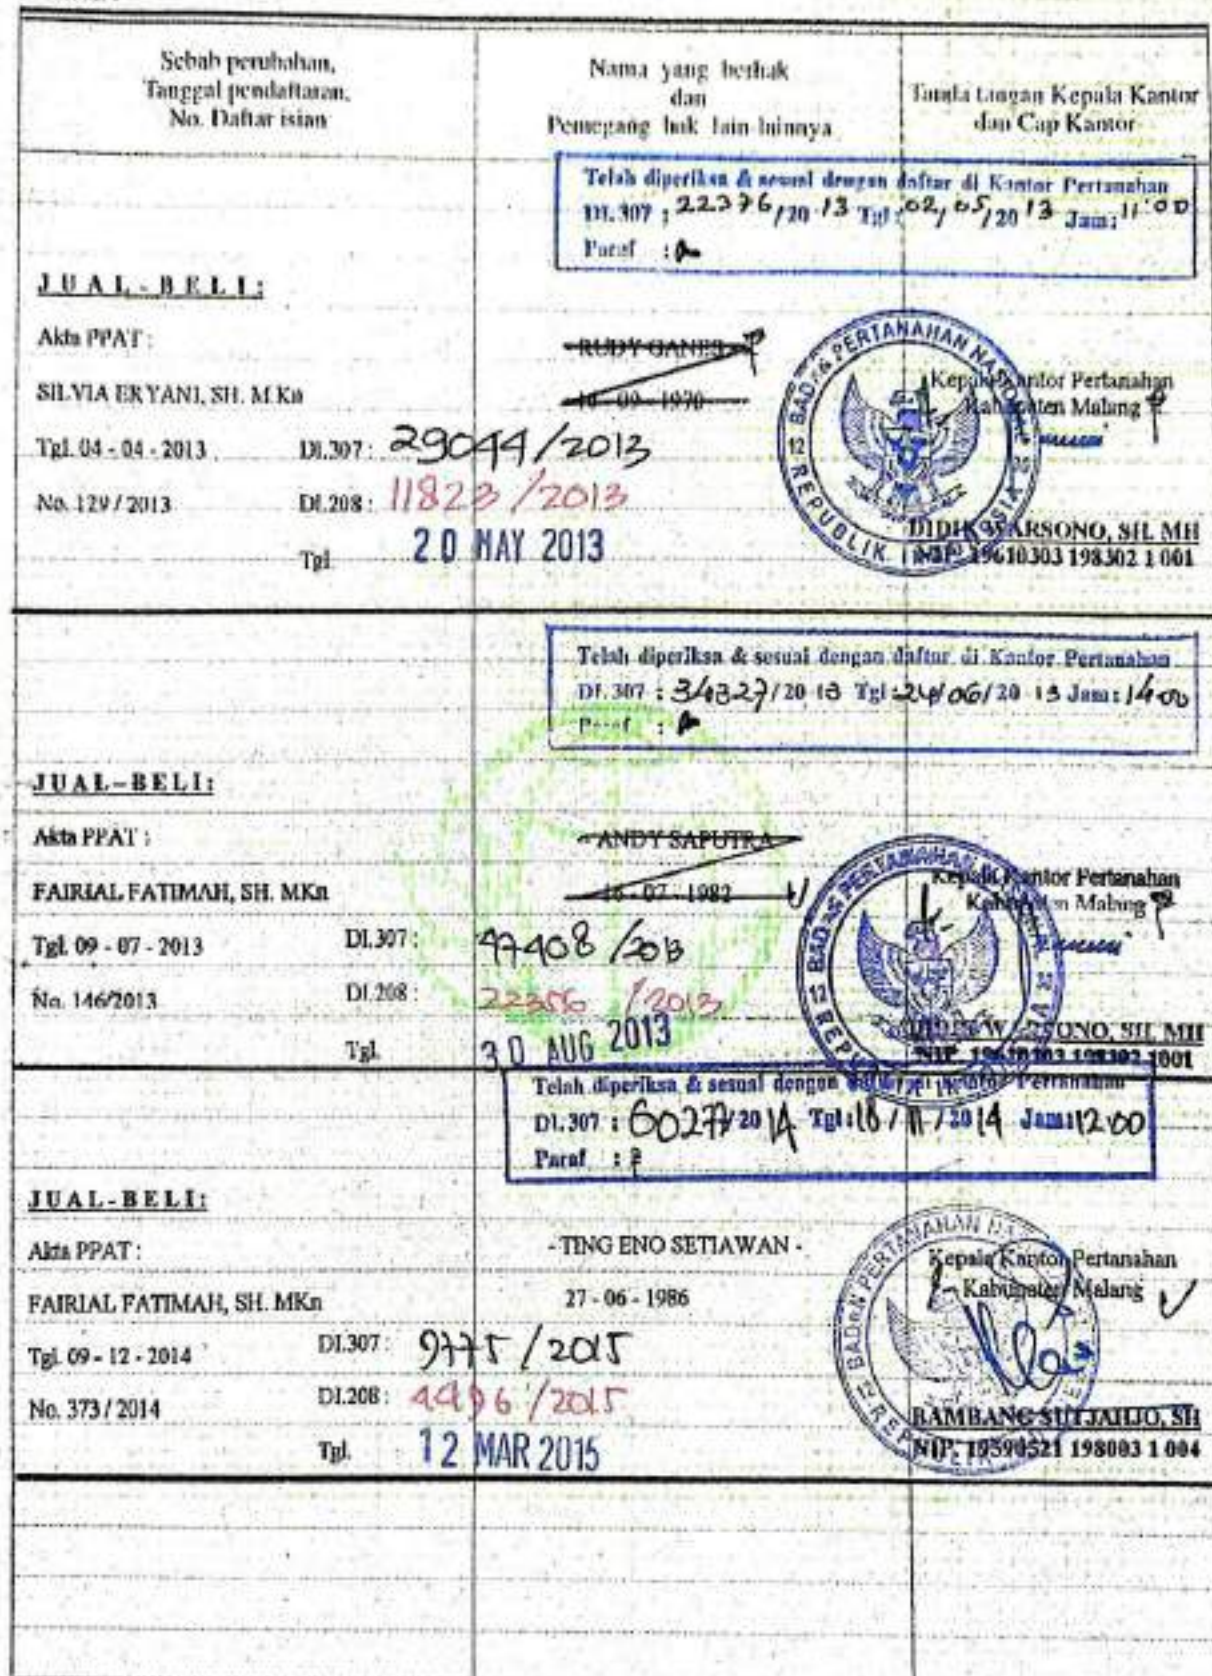 Sebab perubahan,
Tanggal pendaftaran,
No. Daftar isian
Nama yang berhak
dan
Pemegang hak lain-lainnya
Tanda tangan Kepala Kantor
dan Cap Kantor
Telah diperiksa & sesuai dengan daftar di Kantor Pertanahan
DI.307 : 22376/20 13 Tgl : 02/05/20 13 Jam: 11.00
Paraf :
JUAL-BELI:
Akta PPAT :
SILVIA ERYANI, SH. M.Kn
Tgl. 04 - 04 - 2013
No. 129 / 2013
DI.307 : 29044/2013
DI.208 : 11823/2013
Tgl. 20 MAY 2013
RUDY
09 - 1970
BADAN PERTANAHAN NASIONAL
REPUBLIK INDONESIA
12
Kepala Kantor Pertanahan
Kabupaten Malang
DIDIK WARSONO, SH. MH
NIP. 19610303 198302 1 001
Telah diperiksa & sesuai dengan daftar di Kantor Pertanahan
DI.307 : 34327/20 13 Tgl : 24/06/20 13 Jam: 14.00
Paraf :
JUAL-BELI:
Akta PPAT :
FAIRIAL FATIMAH, SH. MKn
Tgl. 09 - 07 - 2013
No. 146/2013
DI.307 : 47408/2013
DI.208 : 22356/2013
Tgl. 30 AUG 2013
- ANDY SAPUTRA
16 - 07 - 1982
BADAN PERTANAHAN
REPUBLIK
12
Kepala Kantor Pertanahan
Kabupaten Malang
DIDIK WARSONO, SH. MH
NIP. 19610303 198302 1001
Telah diperiksa & sesuai dengan daftar di Kantor Pertanahan
DI.307 : 60277/20 14 Tgl : 18/11/20 14 Jam: 12.00
Paraf :
JUAL-BELI:
Akta PPAT :
FAIRIAL FATIMAH, SH. MKn
Tgl. 09 - 12 - 2014
No. 373 / 2014
DI.307 : 9775/2015
DI.208 : 4496/2015
Tgl. 12 MAR 2015
- TING ENO SETIAWAN -
27 - 06 - 1986
BADAN PERTANAHAN
12
Kepala Kantor Pertanahan
Kabupaten Malang
BAMBANG SUTJAHJO, SH
NIP. 19590521 198003 1 004